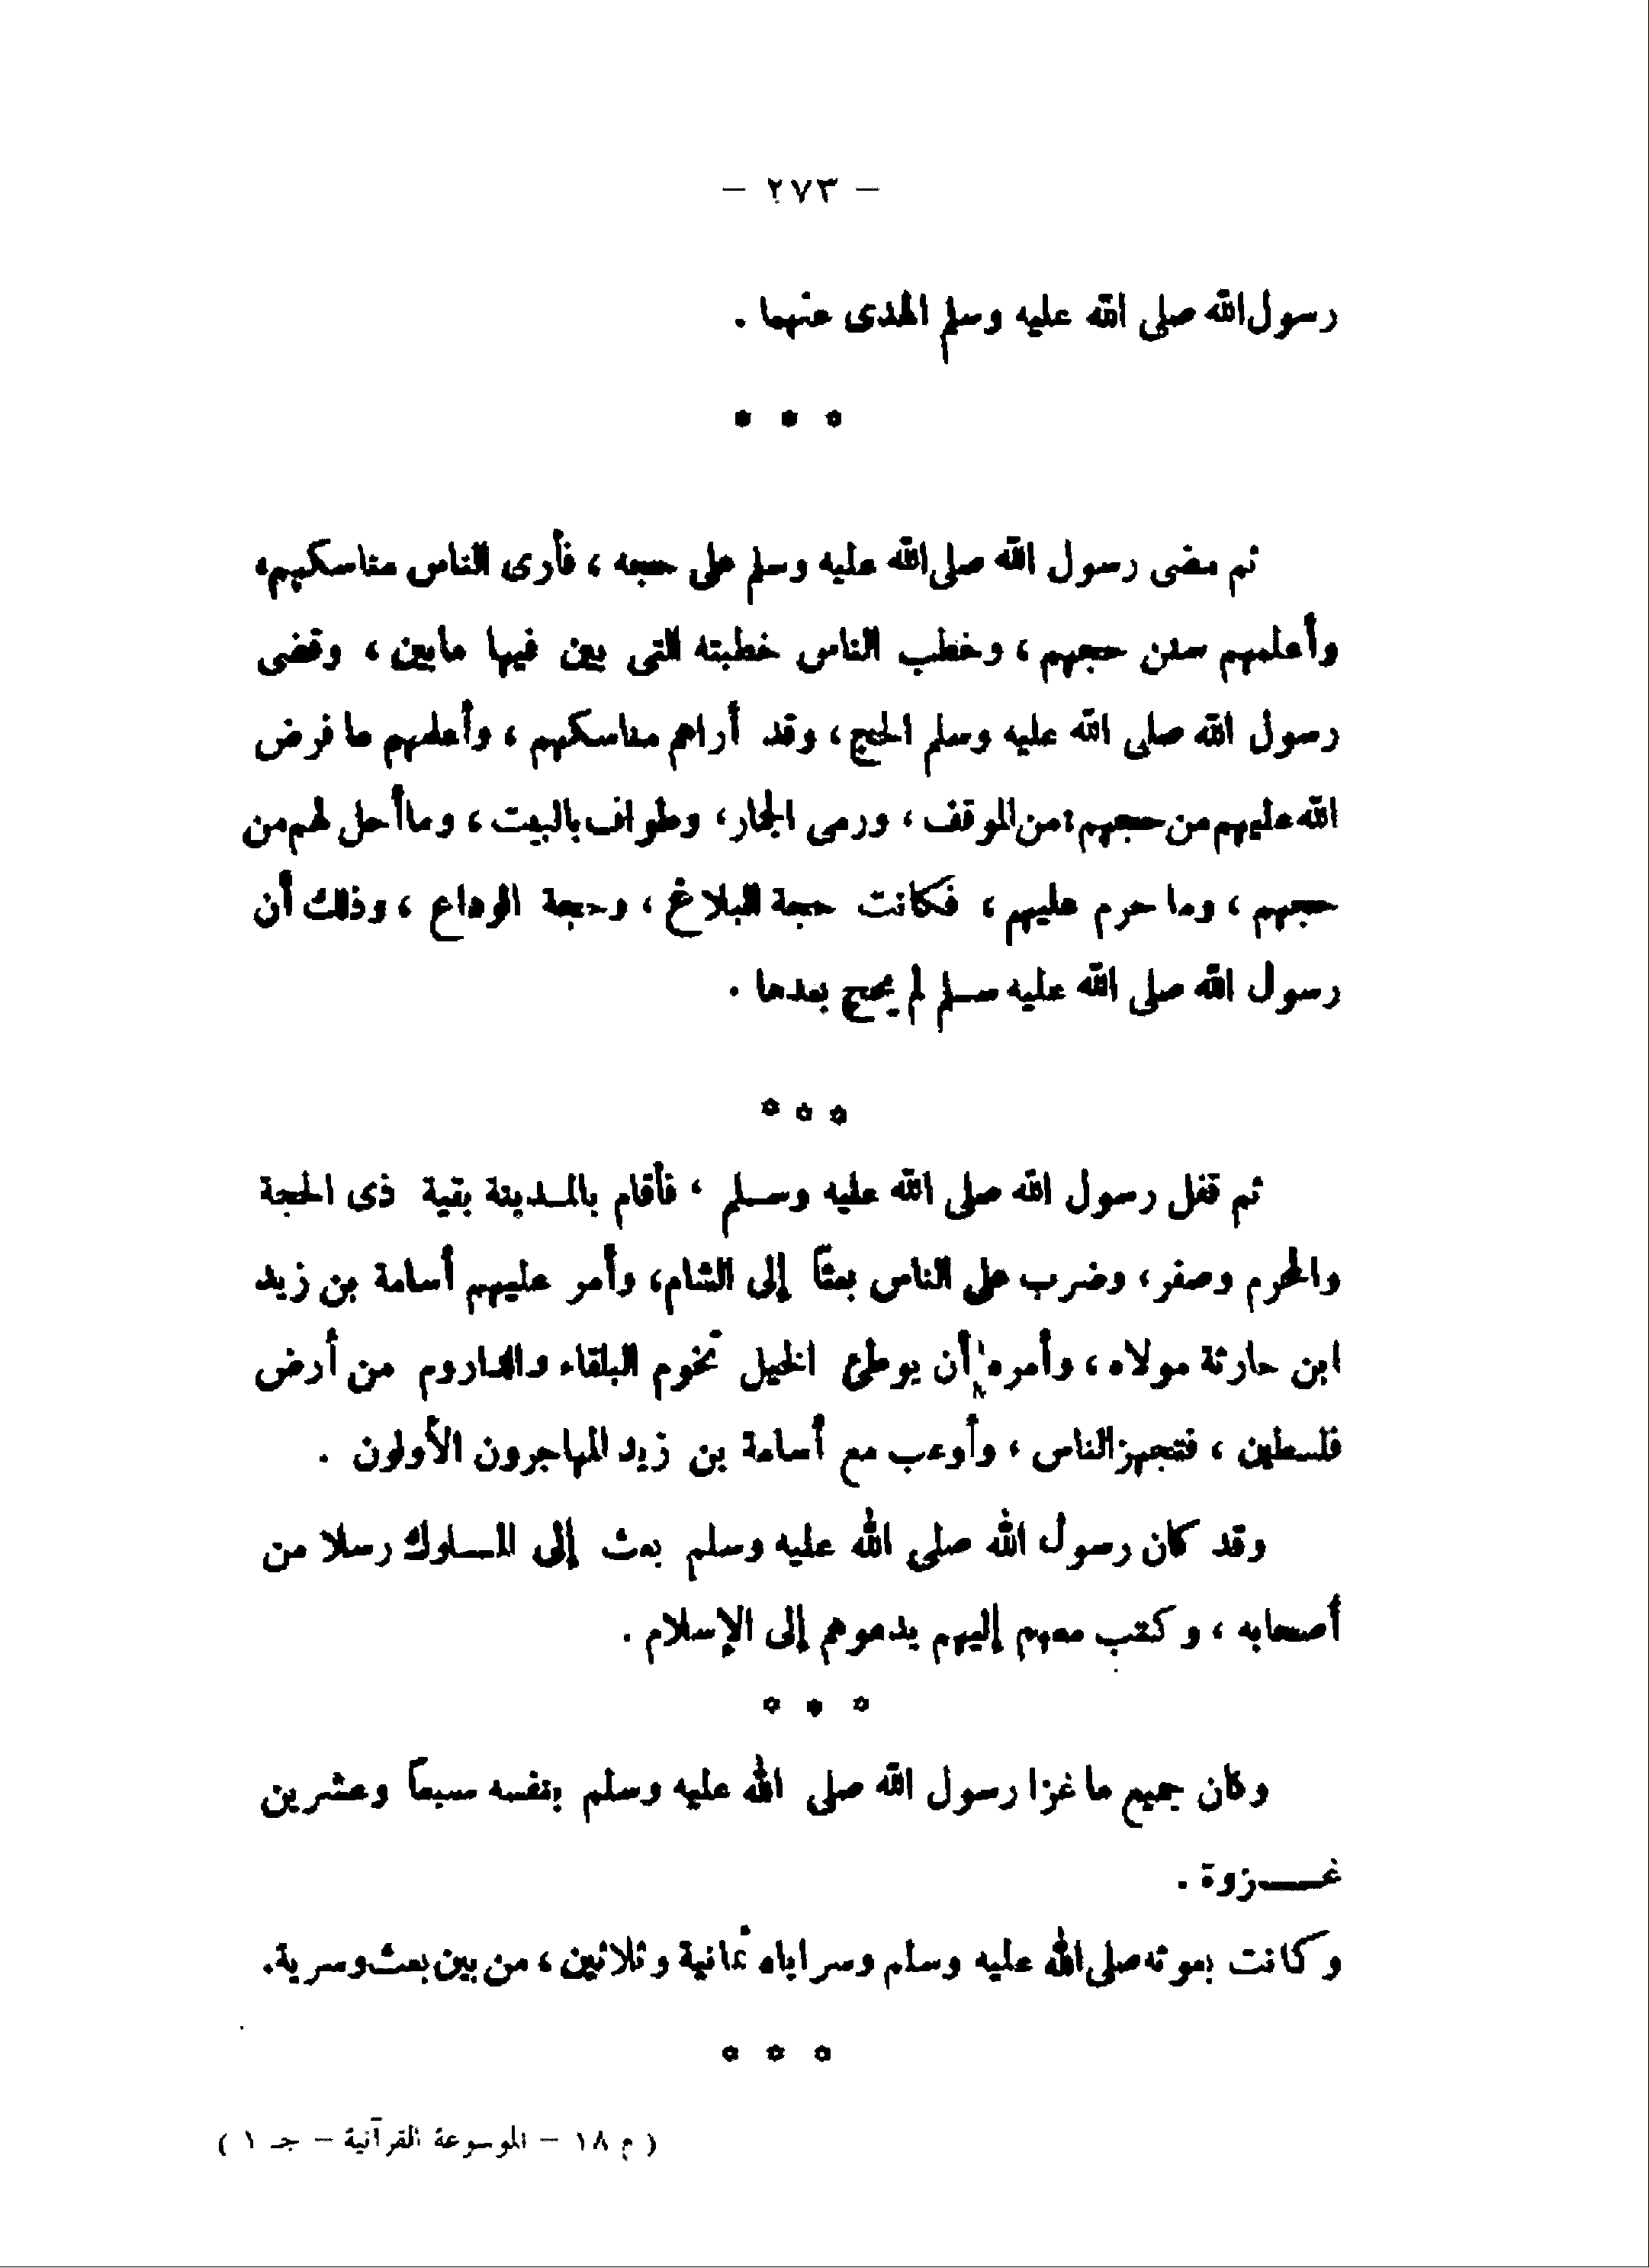 — ٢٧٣ —
رسول الله صلى الله عليه وسلم الهدى عنهما .
* * *
ثم مضى رسول الله صلى الله عليه وسلم على حجه ، فأرى الناس مناسكهم،
وأعلمهم سنن حجهم ، وخطب الناس خطبته التى بين فيها مابين ، وقضى
رسول الله صلى الله عليه وسلم الحج ، وقد أراهم مناسكهم ، وأعلمهم ما فرض
الله عليهم من حجهم : من الموقف ، ورمى الجمار ، وطواف بالبيت ، وما أحل لهم من
حجهم ، وما حرم عليهم ، فكانت حجة البلاغ ، وحجة الوداع ، وذلك أن
رسول الله صلى الله عليه سلم لم يحج بعدها .
* * *
ثم قفل رسول الله صلى الله عليه وسلم ، فأقام بالمدينة بقية ذى الحجة
والمحرم وصفر ، وضرب على الناس بعثاً إلى الشام، وأمر عليهم أسامة بن زيد
ابن حارثة مولاه ، وأمره أن يوطئ الخيل تخوم البلقاء والداروم من أرض
فلسطين ، فتجهز الناس ، وأوعب مع أسامة بن زيد المهاجرون الأولون .
وقد كان رسول الله صلى الله عليه وسلم بعث إلى الملوك رسلا من
أصحابه ، وكتب معهم إليهم يدعوهم إلى الإسلام .
* * *
وكان جميع ما غزا رسول الله صلى الله عليه وسلم بنفسه سبعاً وعشرين
غزوة .
وكانت بعوثه صلى الله عليه وسلم وسراياه ثمانية وثلاثين ، من بين بعث وسرية.
* * *
( م ١٨ — الموسوعة القرآنية — جـ ١ )